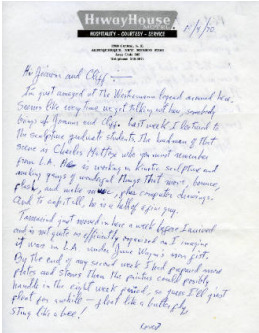 HiwayHouse
HOSPITALITY - COURTESY - SERVICE
ALBUQUERQUE, NEW MEXICO
Hi and Cliff —
I'm just amazed at the legend around here.
Seems like every time we get talking art here, somebody
brings up and Cliff. Last week I lectured to
the sculpture graduate students. The headman of that
scene is Charles Mattox who you must remember
from L.A. He is working in kinetic sculpture and
making groups of wonderful things that move, bounce,
and make noise, plus computer drawings.
And to top it all, he is a hell of a fine guy.
Tamarind just moved in here a week before I arrived
and is not quite as efficiently organized as I imagine
it was in L.A. under June Wayne's iron fist.
By the end of my second week I had prepared more
plates and stones than the printers could possibly
handle in the eight week period, so guess I'll just
float for awhile — float like a butterfly
sting like a bee!
(over)